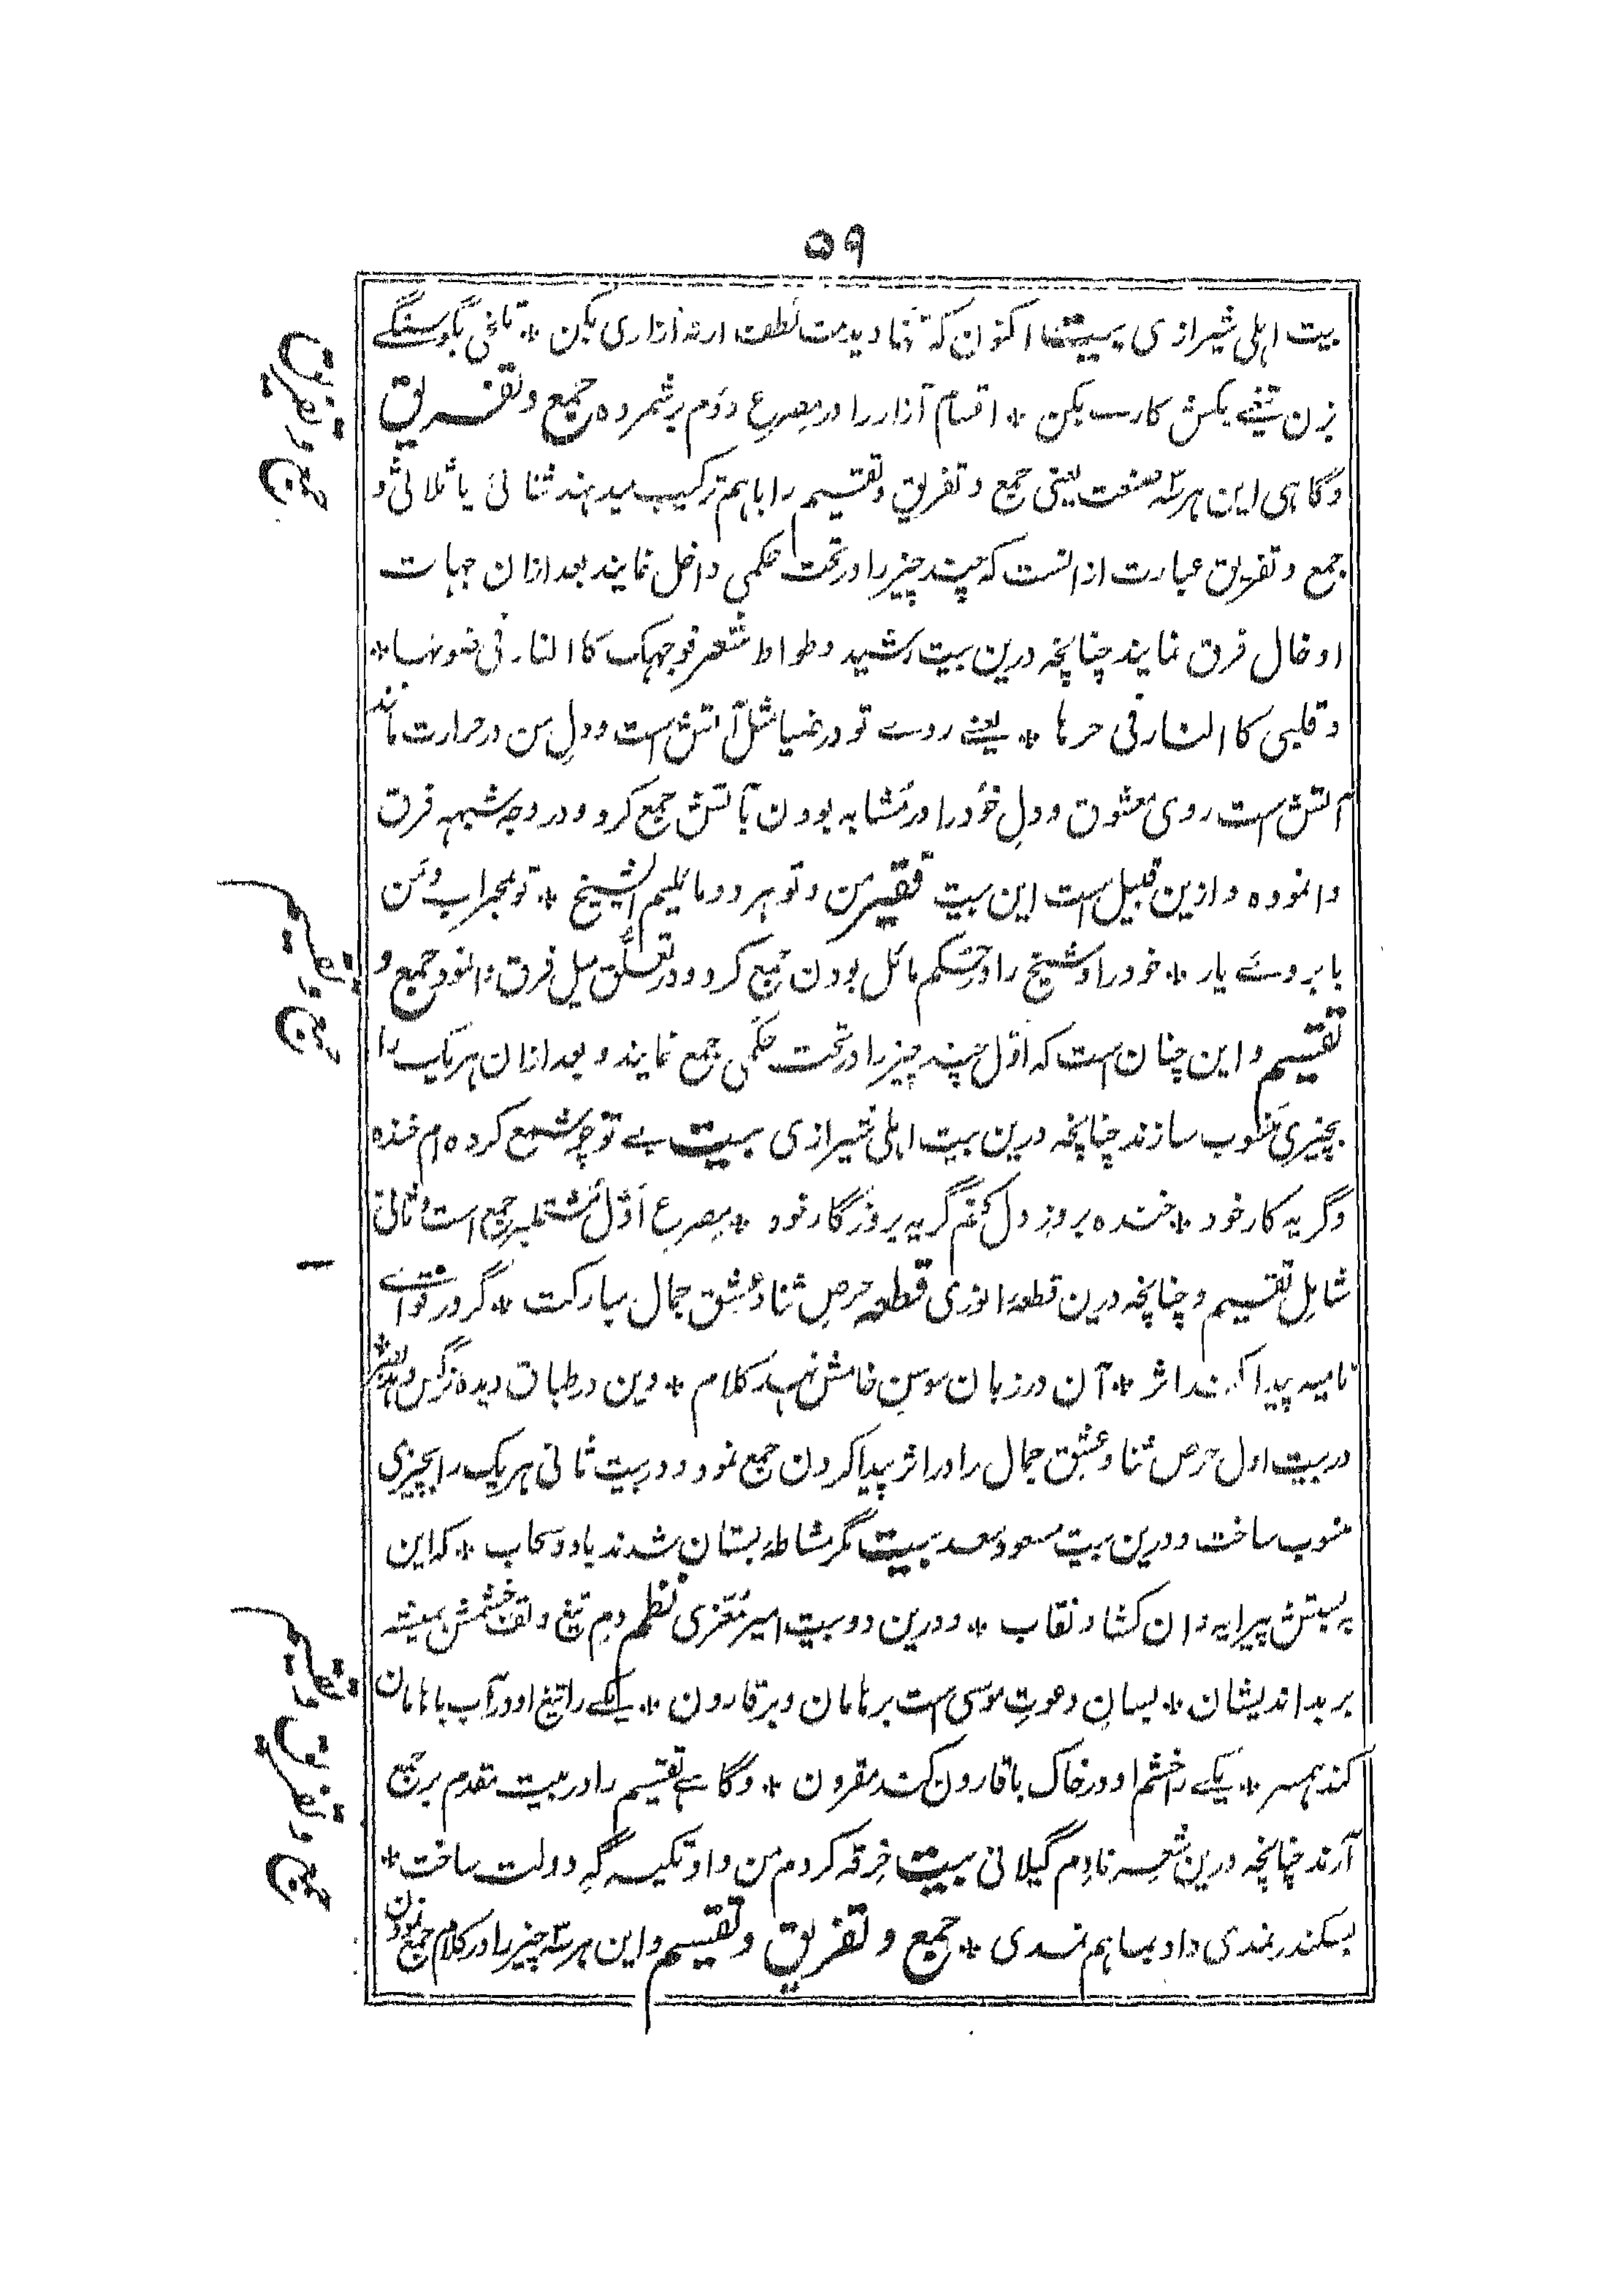 ۵۹
بیت اہلی شیرازی بیت اکنون که تنها دیدمت لطف ارنه آزاری بکن * تلخی بگو سنگے
بزن تیغے بکش کارے بکن * اقسام آزار را در مصرع دوم برشمرده جمع و تفریق
وگاہی این ہر سہ صنعت یعنی جمع و تفریق و تقسیم را باہم ترکیب میدہند ثنائی یا ثلاثی و
جمع و تفریق عبارت ازانست که چند چیز را در تحت حکمی داخل نمایند بعد ازان جہات
ادخال فرق نمایند چنانچہ درین بیت رشید وطواط شعر فوجہک کا النار فی ضوئہا *
و قلبی کا النار فی حرہا * یعنے روے تو در ضیا مثل آتش است و دل من در حرارت مانند
آتش است روی معشوق و دل خود را در مشابہ بودن بآتش جمع کرد و در وجہ شبہ فرق
وانموده و ازین قبیل است این بیت فقیر من و تو ہر دو مائلیم اے شیخ * تو بمحراب و من
بابروئے یار * خود را و شیخ را در حکم مائل بودن جمع کرد و در تعلق میل فرق وانمود جمع و
تقسیم و این چنان است کہ اول چند چیز را در تحت حکمی جمع نمایند و بعد ازان ہریک را
بچیزی منسوب سازند چنانچہ درین بیت اہلی شیرازی بیت بے تو چو شمع کرده ام خنده
وگریہ کار خود * خنده بروز دل کنم گریہ بروزگار خود * مصرع اول مشتملبر جمع است و ثانی
شامل تقسیم و چنانچہ درین قطعۂ انوری قطعہ حرص ثنا و عشق جمال مبارکت * گر در قوائے
نامیہ پیدا کند اثر * آن در زبان سوسن خامش نہد کلام * وین در طباق دیده نرگس نہد بصر *
در بیت اول حرص ثنا و عشق جمال را در اثر پیدا کردن جمع نمود و در بیت ثانی ہریک را بچیزی
منسوب ساخت و درین بیت مسعود سعد بیت مگر مشاطہ بستان شدند باد و سحاب * کہ این
ببستش پیرایہ وان کشاد نقاب * و درین دو بیت امیر معزی نظم دم تیغ و تف خشمش ہمیشہ
بر بداندیشان * بسان دعوت موسی است بر ہامان و بر قارون * یکے را تیغ او در آب با ہامان
کند ہمسر * یکے را خشم او در خاک با قارون کند مقرون * وگاہے تقسیم را در بیت مقدم بر جمع
آرند چنانچہ درین شعر نادم گیلانی بیت خرقہ کردم من و او تکیہ گہ دولت ساخت *
بسکندر نمدی داد بما ہم نمدی * جمع و تفریق و تقسیم و این ہر سہ چیز را در کلام جمع نمودن
جمع و تفریق
جمع و تقسیم
جمع و تفریق و تقسیم